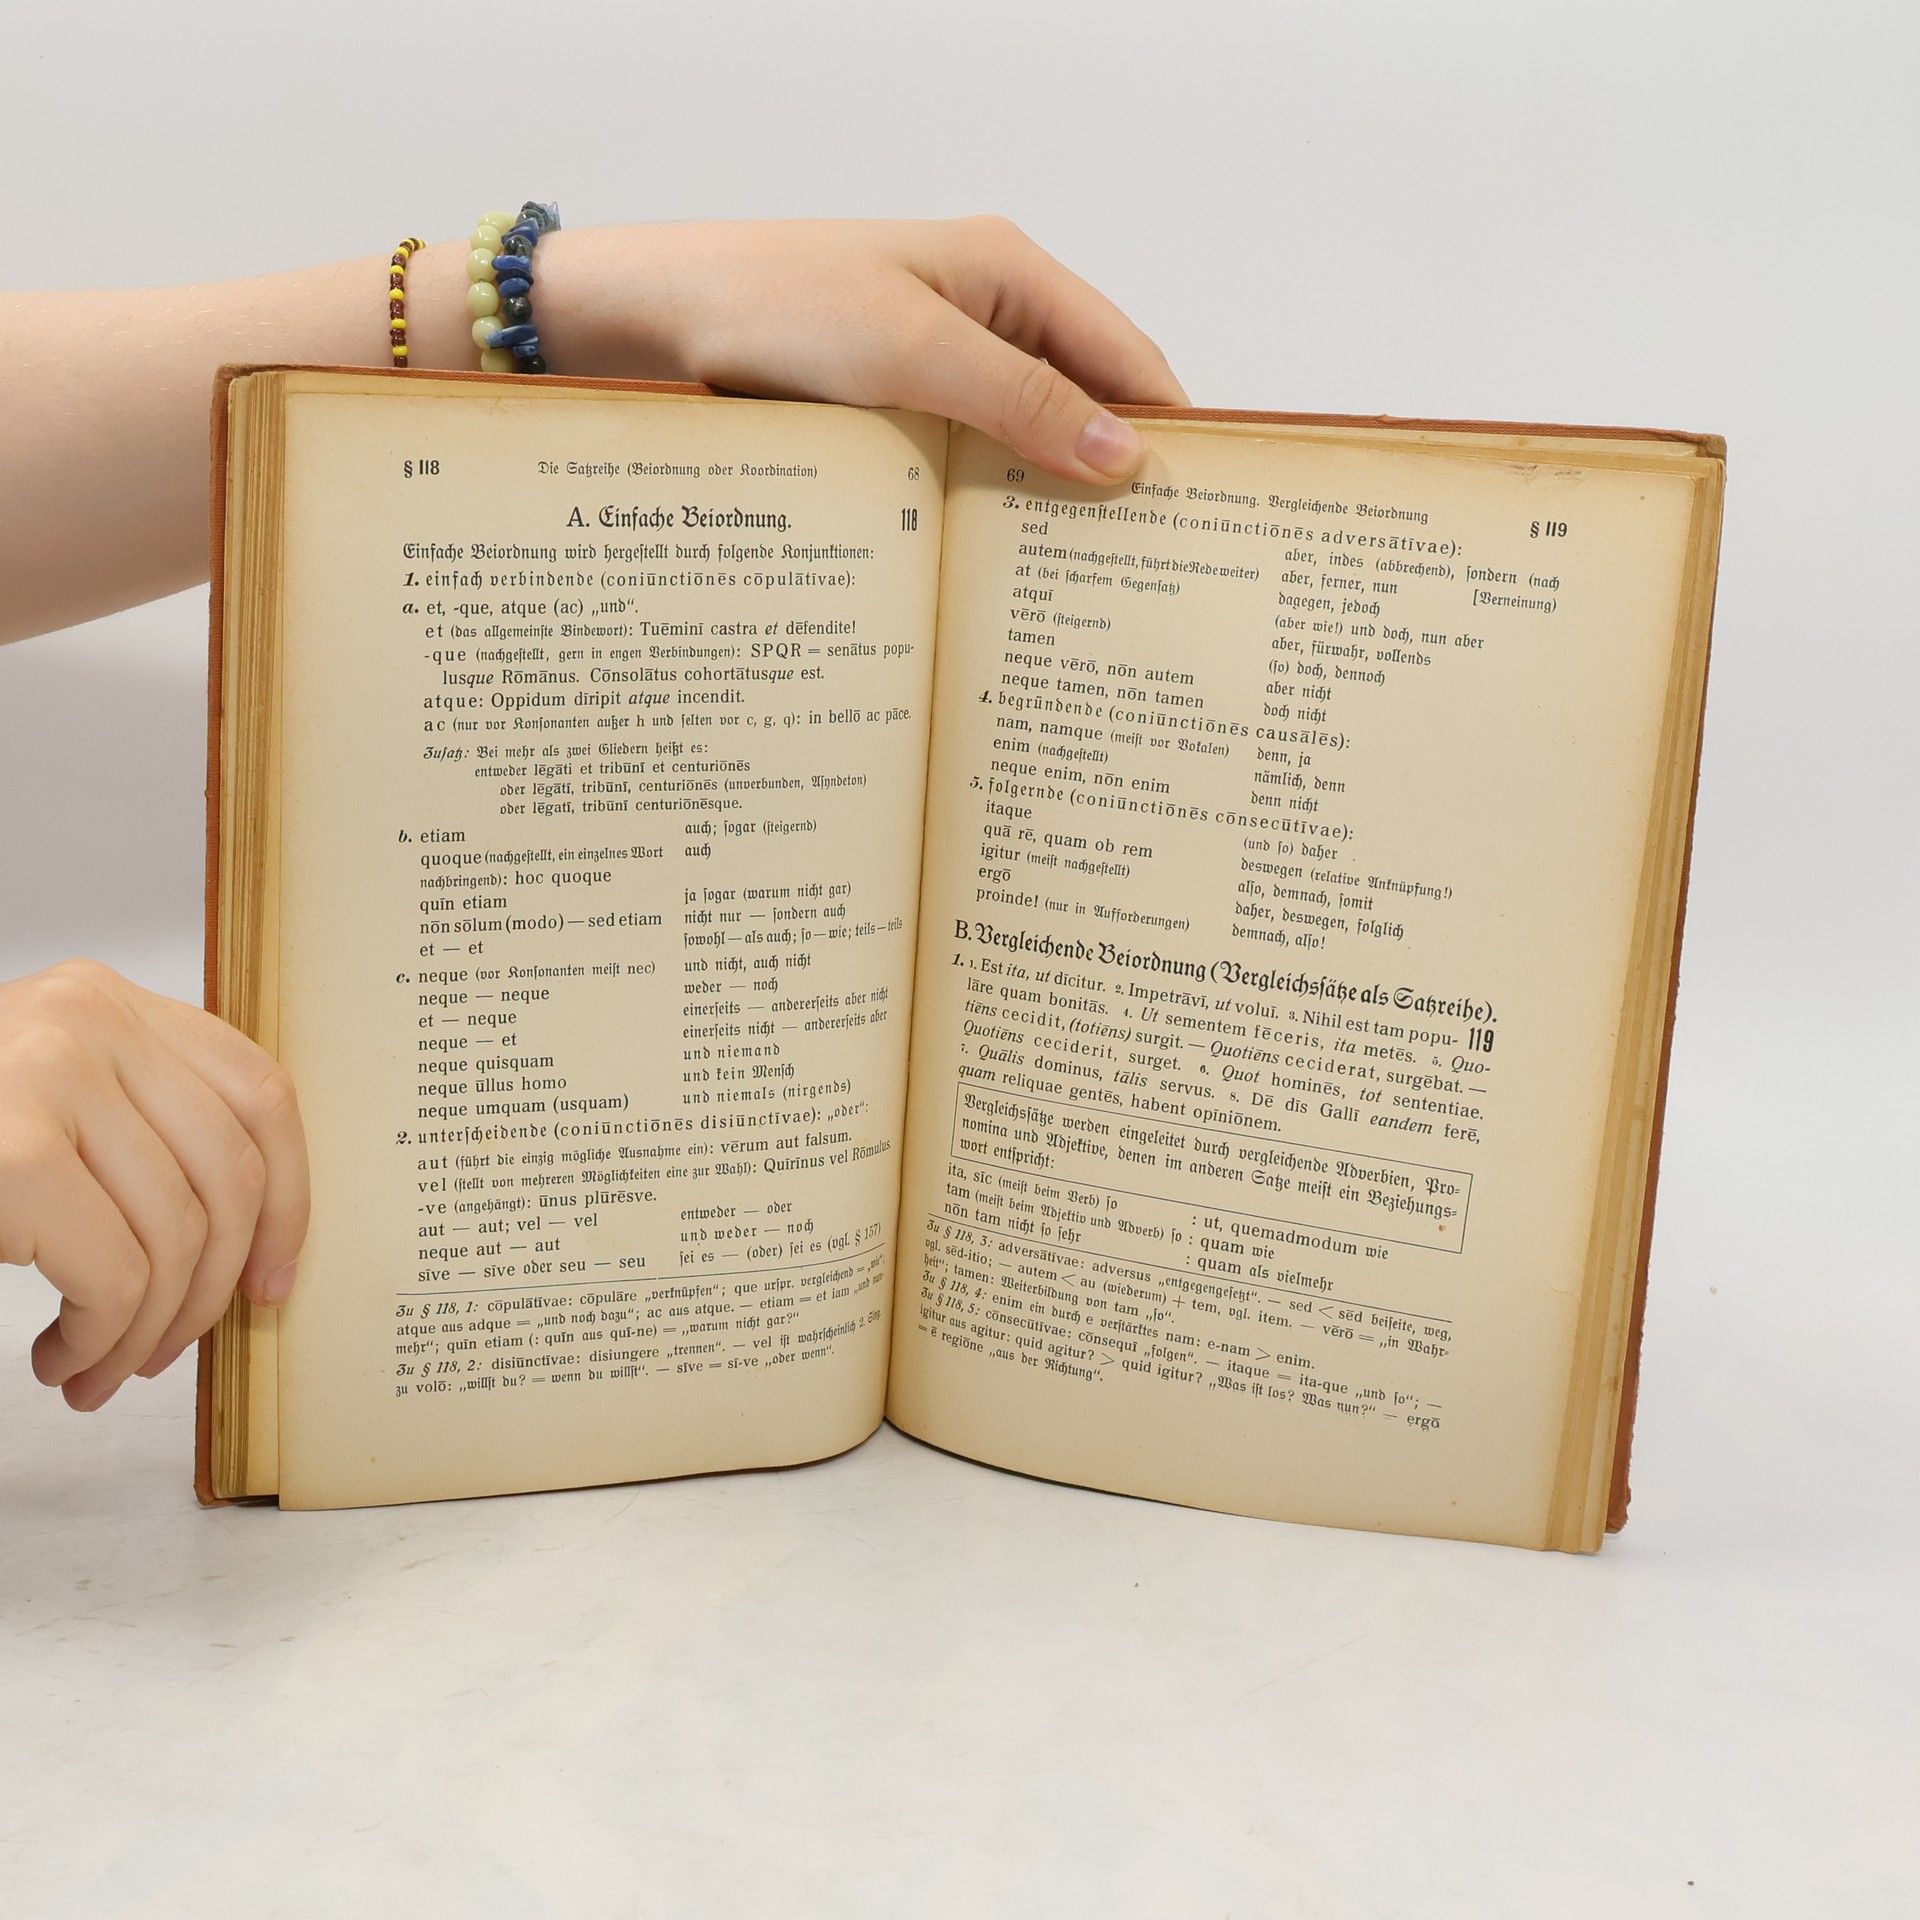 § 118 Die Satzreihe (Beiordnung oder Koordination) 68
A. Einfache Beiordnung. 118
Einfache Beiordnung wird hergestellt durch folgende Konjunktionen:
1. einfach verbindende (coniūnctiōnēs cōpulātīvae):
a. et, -que, atque (ac) „und“.
et (das allgemeinste Bindewort): Tuēminī castra et dēfendite!
-que (nachgestellt, gern in engen Verbindungen): SPQR = senātus popu-
lusque Rōmānus. Cōnsolātus cohortātusque est.
atque: Oppidum dīripit atque incendit.
ac (nur vor Konsonanten außer h und selten vor c, g, q): in bellō ac pāce.
Zusatz: Bei mehr als zwei Gliedern heißt es:
entweder lēgāti et tribūnī et centuriōnēs
oder lēgātī, tribūnī, centuriōnēs (unverbunden, Asyndeton)
oder lēgatī, tribūnī centuriōnēsque.
b. etiam auch; sogar (steigernd)
quoque (nachgestellt, ein einzelnes Wort auch
nachbringend): hoc quoque
quīn etiam ja sogar (warum nicht gar)
nōn sōlum (modo) — sed etiam nicht nur — sondern auch
et — et sowohl — als auch; so — wie; teils — teils
c. neque (vor Konsonanten meist nec) und nicht, auch nicht
neque — neque weder — noch
et — neque einerseits — andererseits aber nicht
neque — et einerseits nicht — andererseits aber
neque quisquam und niemand
neque ūllus homo und kein Mensch
neque umquam (usquam) und niemals (nirgends)
2. unterscheidende (coniūnctiōnēs disiūnctīvae): „oder“:
aut (führt die einzig mögliche Ausnahme ein): vērum aut falsum.
vel (stellt von mehreren Möglichkeiten eine zur Wahl): Quirīnus vel Rōmulus.
-ve (angehängt): ūnus plūrēsve.
aut — aut; vel — vel entweder — oder
neque aut — aut und weder — noch
sīve — sīve oder seu — seu sei es — (oder) sei es (vgl. § 157)
Zu § 118, 1: cōpulātīvae: cōpulāre „verknüpfen“; que urspr. vergleichend = „wie“;
atque aus adque = „und noch dazu“; ac aus atque. — etiam = et iam „und nun
mehr“; quīn etiam (: quīn aus quī-ne) = „warum nicht gar?“
Zu § 118, 2: disiūnctīvae: disiungere „trennen“. — vel ist wahrscheinlich 2. Sing.
zu volō: „willst du? = wenn du willst“. — sīve = sī-ve „oder wenn“.
69 Einfache Beiordnung. Vergleichende Beiordnung § 119
3. entgegenstellende (coniūnctiōnēs adversātīvae):
sed aber, indes (abbrechend), sondern (nach
autem (nachgestellt, führt die Rede weiter) aber, ferner, nun [Verneinung)
at (bei scharfem Gegensatz) dagegen, jedoch
atquī (aber wie!) und doch, nun aber
vērō (steigernd) aber, fürwahr, vollends
tamen (so) doch, dennoch
neque vērō, nōn autem aber nicht
neque tamen, nōn tamen doch nicht
4. begründende (coniūnctiōnēs causālēs):
nam, namque (meist vor Vokalen) denn, ja
enim (nachgestellt) nämlich, denn
neque enim, nōn enim denn nicht
5. folgernde (coniūnctiōnēs cōnsecūtīvae):
itaque (und so) daher
quā rē, quam ob rem deswegen (relative Anknüpfung!)
igitur (meist nachgestellt) also, demnach, somit
ergō daher, deswegen, folglich
proinde! (nur in Aufforderungen) demnach, also!
B. Vergleichende Beiordnung (Vergleichssätze als Satzreihe).
1. 1. Est ita, ut dīcitur. 2. Impetrāvī, ut voluī. 3. Nihil est tam popu- 119
lāre quam bonitās. 4. Ut sementem fēceris, ita metēs. 5. Quo-
tiēns cecidit, (totiēns) surgit. — Quotiēns ceciderat, surgēbat. —
Quotiēns ceciderit, surget. 6. Quot hominēs, tot sententiae.
7. Quālis dominus, tālis servus. 8. Dē dīs Gallī eandem ferē,
quam reliquae gentēs, habent opīniōnem.
Vergleichssätze werden eingeleitet durch vergleichende Adverbien, Pro-
nomina und Adjektive, denen im anderen Satze meist ein Beziehungs-
wort entspricht:
ita, sīc (meist beim Verb) so : ut, quemadmodum wie
tam (meist beim Adjektiv und Adverb) so : quam wie
nōn tam nicht so sehr : quam als vielmehr
Zu § 118, 3: adversātīvae: adversus „entgegengesetzt“. — sed < sēd beiseite, weg,
vgl. sēd-itio; — autem < au (wiederum) + tem, vgl. item. — vērō = „in Wahr-
heit“; tamen: Weiterbildung von tam „so“.
Zu § 118, 4: enim ein durch e verstärktes nam: e-nam > enim.
Zu § 118, 5: cōnsecūtīvae: cōnsequī „folgen“. — itaque = ita-que „und so“; —
igitur aus agitur: quid agitur? > quid igitur? „Was ist los? Was nun?“ — ergō
= ē regiōne „aus der Richtung“.